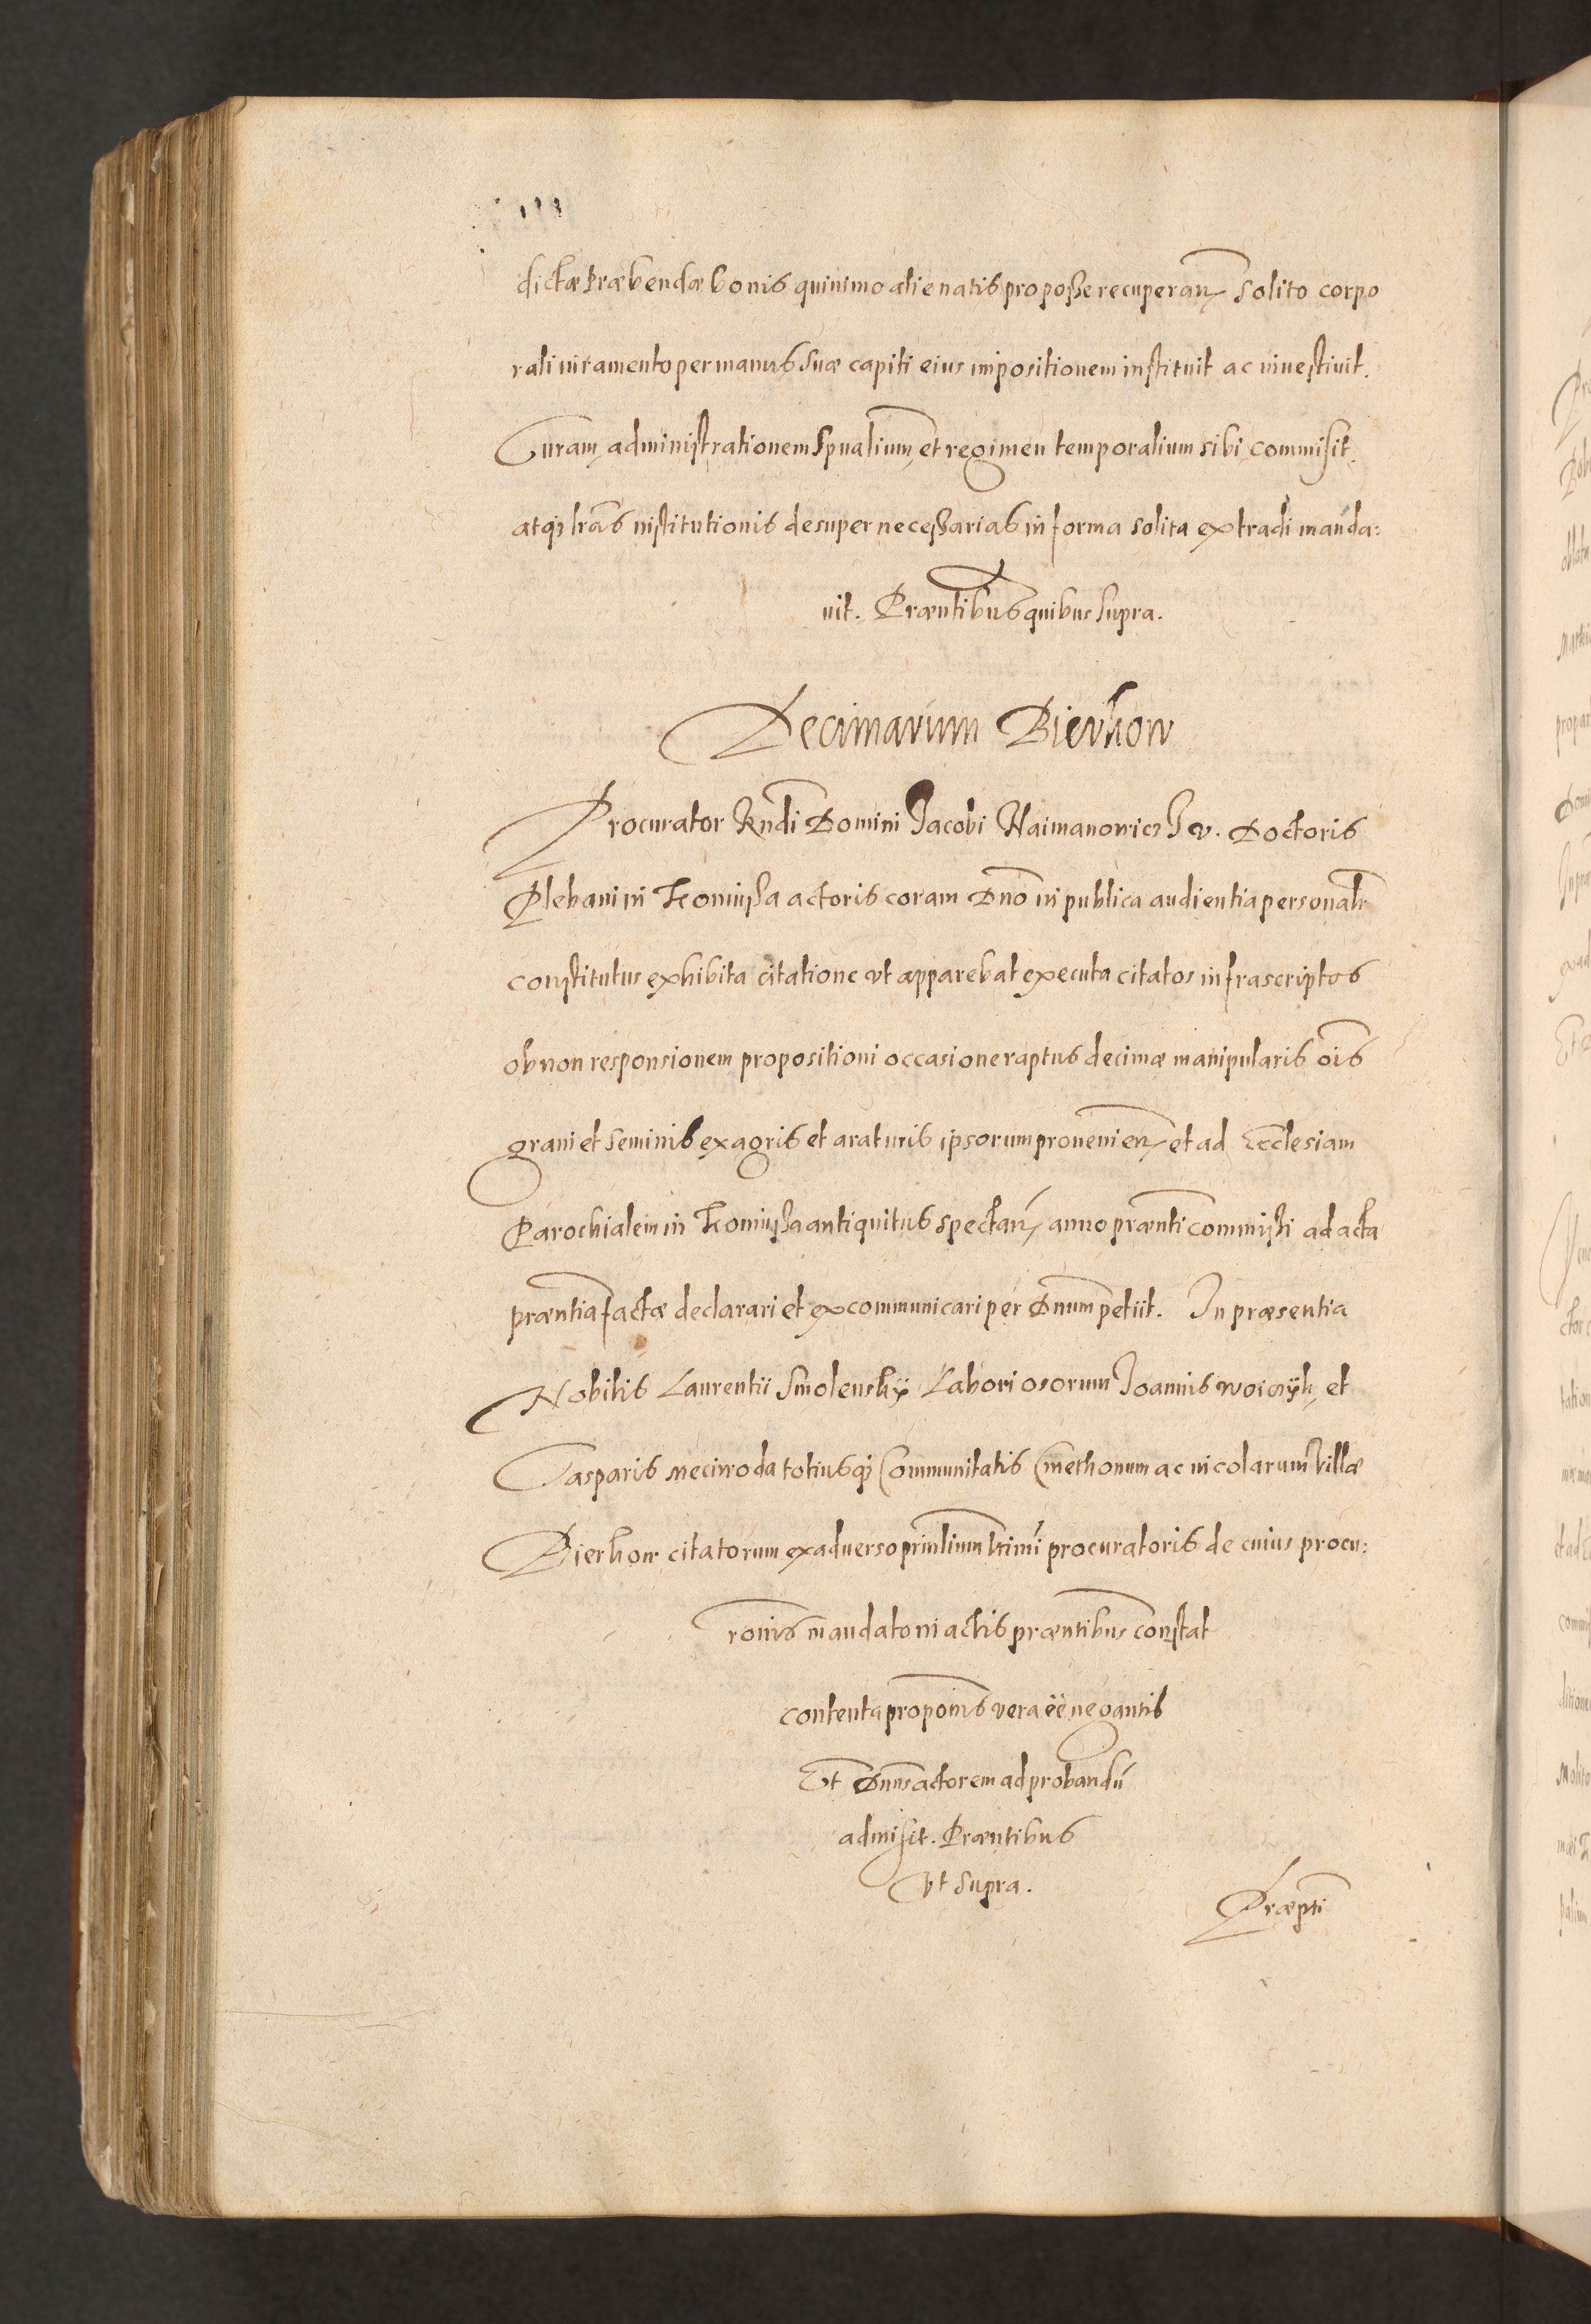 dictæ Præbendæ bonis quinimo alienatis pro posse recuperan solito corpo
rali iuramento per manus suæ capiti eius impositionem instituit ac inuestiuit.
Curam administrationem Spualium et regimen temporalium sibi commisit.
atq lras institutionis desuper necessarias in forma solita extradi manda:
uit. Præntibus quibus supra.
Decimarum Bierkow
Procurator Rndi Domini Jacobi Naimanowicz J v. Doctoris
Plebani in Koniussa actoris coram Dno in publica audientia personalr
constitutus exhibita citatione vt apparebat executa citatos infrascriptos
ob non responsionem propositioni occasione raptus decimæ manipularis ois
grani et seminis ex agris et araturis ipsorum prouenien et ad Ecclesiam
Parochialem in Koniussa antiquitus spectan anno prænti commissi ad acta
præntia factæ declarari et excommunicari per Dnum petiit. In præsentia
Nobilis Laurentii Smolensky Laboriosorum Joannis woiczyk et
Casparis mecirroda totiusq Communitatis Cmethonum ac incolarum Villæ
Bierkow citatorum ex aduerso prinlium ltimi procuratoris de cuius procu:
ronis mandato in actis præntibus constat
contenta proponis vera eë negantis
Et Dnus actorem ad probandu
admisit. Præntibus
vt supra.
Præpti